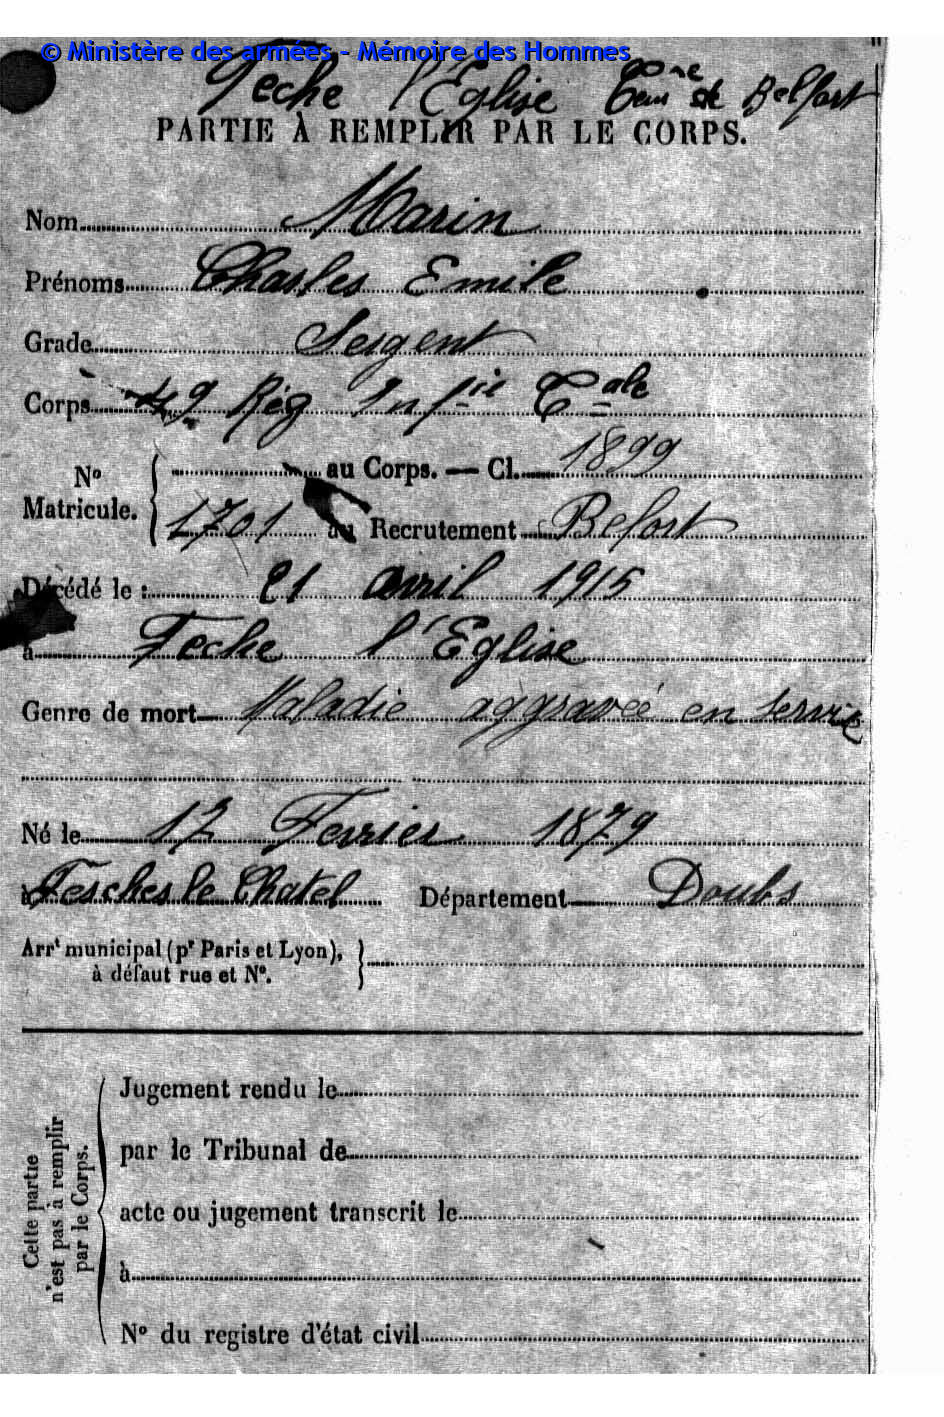 © Ministère des armées - Mémoire des Hommes
Feche l'Eglise Cne Beau de Belfort
PARTIE À REMPLIR PAR LE CORPS.
Nom Marin
Prénoms Charles Emile
Grade Sergent
Corps 49 Rég Infie Cale
No Matricule. au Corps. — Cl. 1899
1701 au Recrutement Belfort
Décédé le : 21 avril 1915
à Feche l'Eglise
Genre de mort Maladie aggravée en service
Né le 12 Fevrier 1879
à Fesches le Chatel Département Doubs
Arrt municipal (pr Paris et Lyon),
à défaut rue et No.
Cette partie n'est pas à remplir par le Corps.
Jugement rendu le
par le Tribunal de
acte ou jugement transcrit le
à
No du registre d'état civil